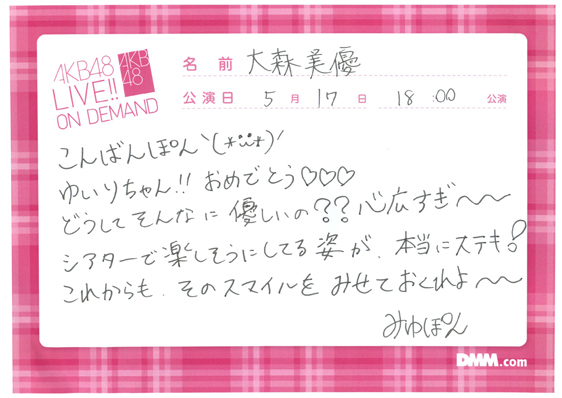 AKB48
LIVE!!
ON DEMAND
AKB
48
名前 大森美優
公演日 5月17日 18:00 公演
こんばんぽん`(*ˊᵕˋ*)′
ゆいりちゃん!! おめでとう♡♡♡
どうしてそんなに優しいの?? 心広すぎ〜〜
シアターで楽しそうにしてる姿が、本当にステキ!
これからも、そのスマイルをみせておくれよ〜〜
みゆぽん
DMM.com